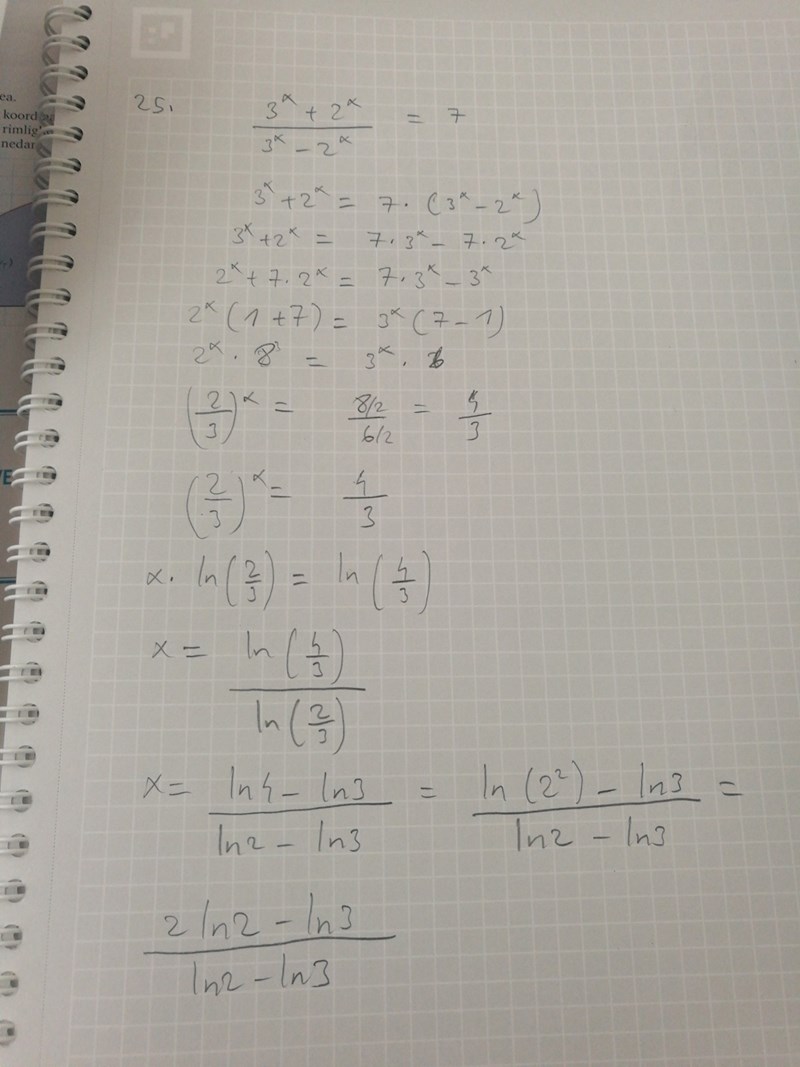 ea.
koord
rimlig
nedan
25. (3^x + 2^x)/(3^x - 2^x) = 7
3^x + 2^x = 7 · (3^x - 2^x)
3^x + 2^x = 7 · 3^x - 7 · 2^x
2^x + 7 · 2^x = 7 · 3^x - 3^x
2^x (1 + 7) = 3^x (7 - 1)
2^x · 8 = 3^x · 6
(2/3)^x = (8/2)/(6/2) = 4/3
(2/3)^x = 4/3
x · ln(2/3) = ln(4/3)
x = ln(4/3)/ln(2/3)
x = (ln4 - ln3)/(ln2 - ln3) = (ln(2^2) - ln3)/(ln2 - ln3) =
(2 ln2 - ln3)/(ln2 - ln3)